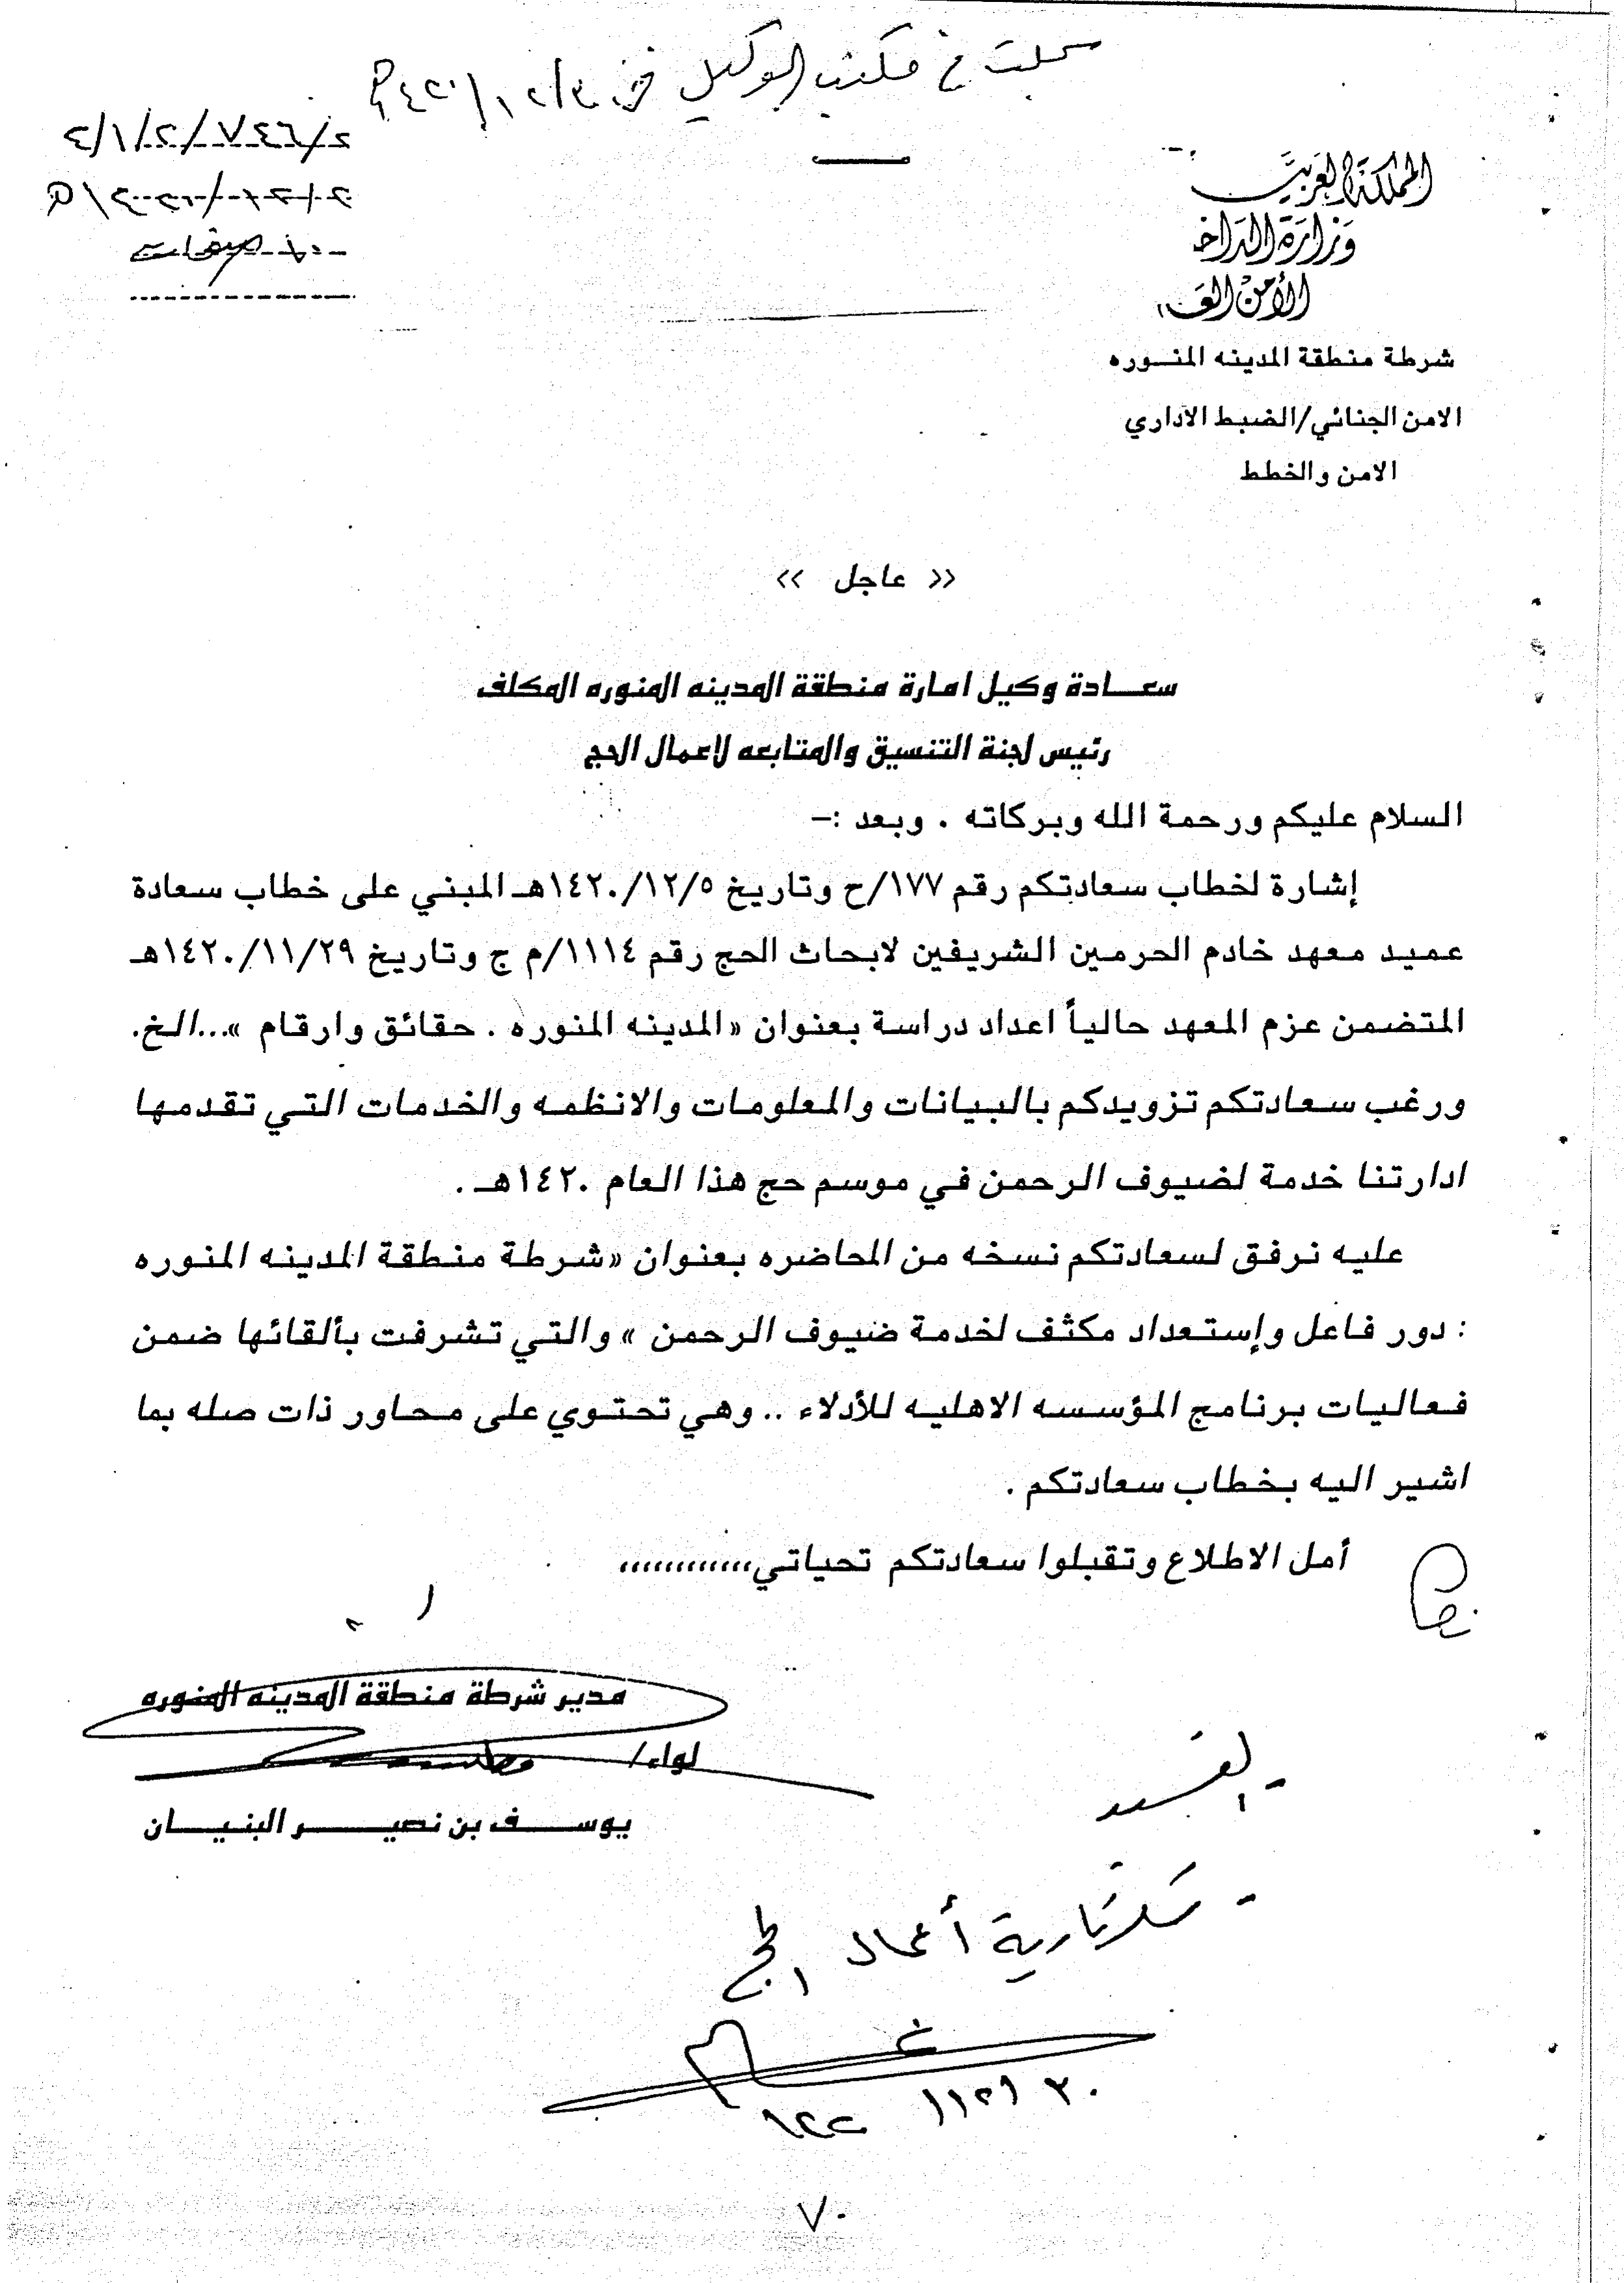 سجلت في مكتب الوكيل في
المملكة العربية
وزارة الداخ
الأمن العا
٢/١/٢/٧٤٦/٢
١٠ صفحات
شرطة منطقة المدينه المنــوره
الامن الجنائي/الضبط الاداري
الامن والخطط
« عاجل »
سعــادة وكيل امارة منطقة المدينه المنوره المكلف
رئيس لجنة التنسيق والمتابعه لاعمال الحج
السلام عليكم ورحمة الله وبركاته . وبعد :-
إشارة لخطاب سعادتكم رقم ١٧٧/ح وتاريخ ١٤٢٠/١٢/٥هـ المبني على خطاب سعادة
عميد معهد خادم الحرمين الشريفين لابحاث الحج رقم ١١١٤/م ج وتاريخ ١٤٢٠/١١/٢٩هـ
المتضمن عزم المعهد حالياً اعداد دراسة بعنوان «المدينه المنوره . حقائق وارقام »...الخ.
ورغب سعادتكم تزويدكم بالبيانات والمعلومات والانظمه والخدمات التي تقدمها
ادارتنا خدمة لضيوف الرحمن في موسم حج هذا العام ١٤٢٠هـ .
عليه نرفق لسعادتكم نسخه من المحاضره بعنوان «شرطة منطقة المدينه المنوره
: دور فاعل وإستعداد مكثف لخدمة ضيوف الرحمن » والتي تشرفت بألقائها ضمن
فعاليات برنامج المؤسسه الاهليه للأدلاء .. وهي تحتوي على محاور ذات صله بما
اشير اليه بخطاب سعادتكم .
أمل الاطلاع وتقبلوا سعادتكم تحياتي،،،،،،،،،،،،
مدير شرطة منطقة المدينه المنوره
لواء/
يوســف بن نصيــر البنيــان
- سكرتارية أعمال الحج
٧٠